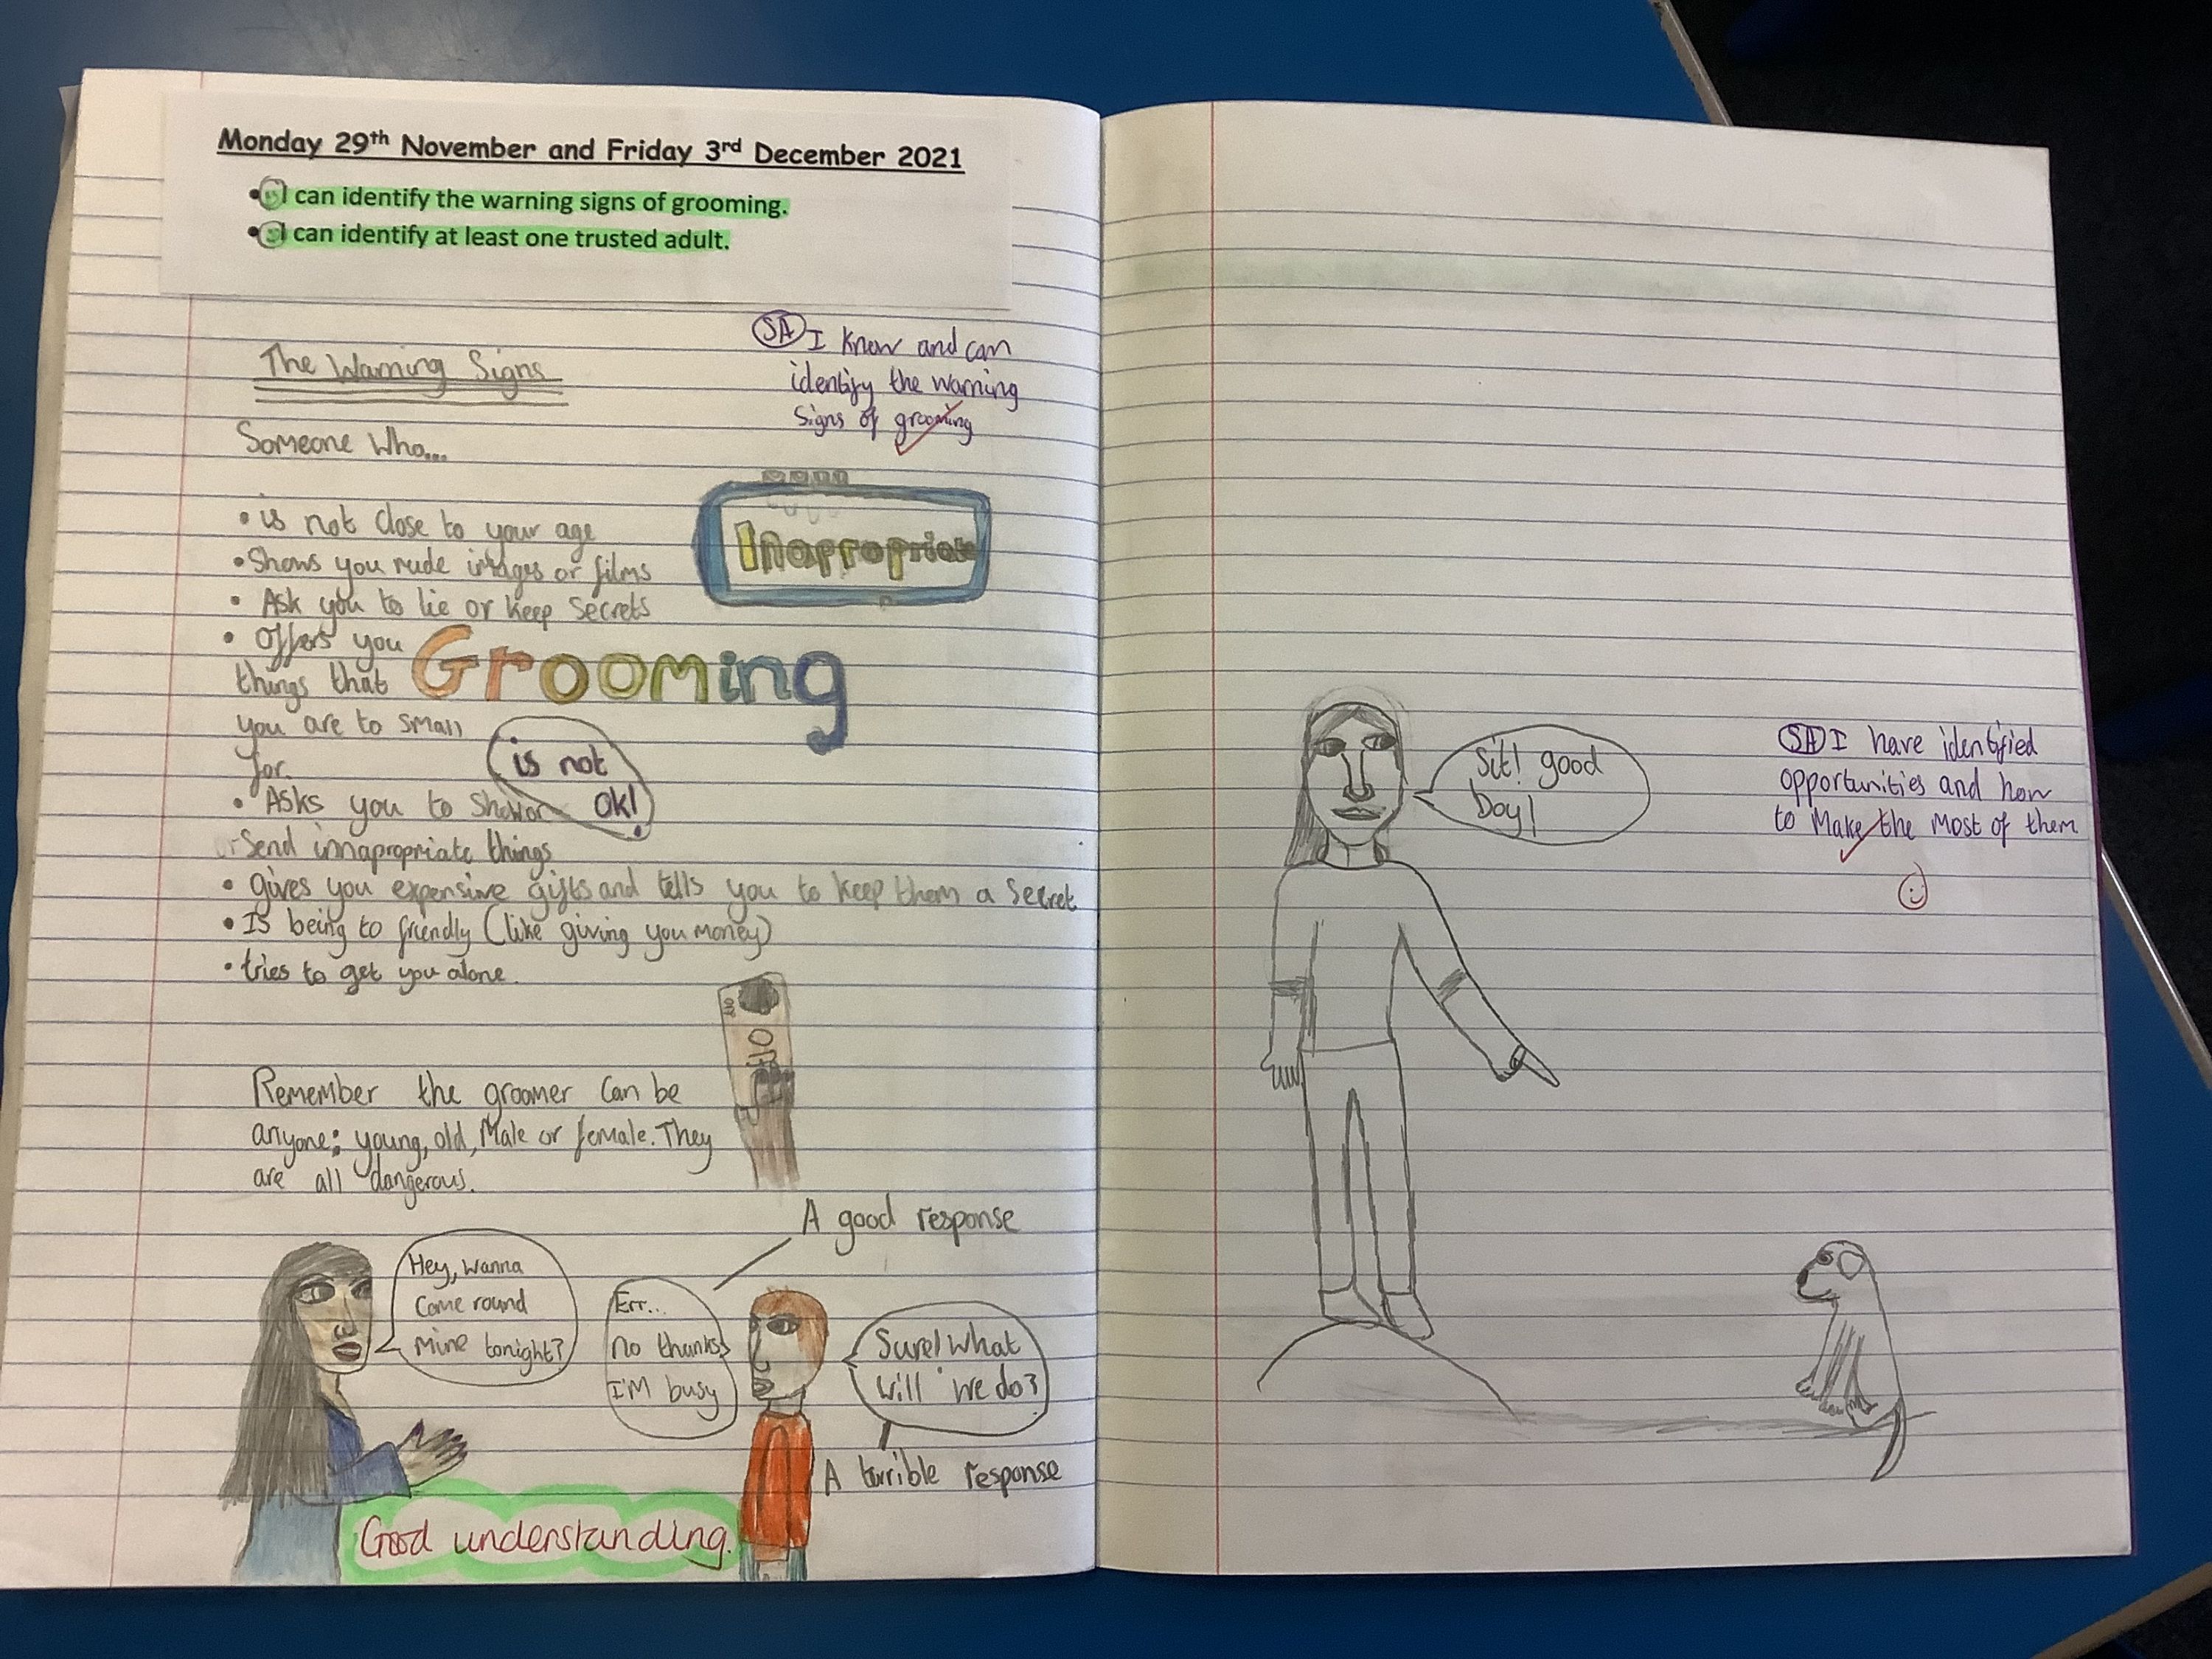 Monday 29th November and Friday 3rd December 2021
• I can identify the warning signs of grooming.
• I can identify at least one trusted adult.
SA I know and can
identify the warning
signs of grooming
The Warning Signs
Someone Who...
• is not close to your age
• Shows you rude images or films
• Ask you to lie or keep secrets
• Offers you
things that
you are to small
for.
• Asks you to Show or
or Send innapropriate things
• gives you expensive gifts and tells you to keep them a secret
• Is being to friendly (like giving you money)
• tries to get you alone.
Inapropriate
Grooming
is not
ok!
Remember the groomer can be
anyone: young, old, Male or female. They
are all dangerous.
A good response
Hey, wanna
Come round
Mine tonight?
Err...
no thanks
I'M busy
Sure! What
will we do?
A terrible response
Good understanding.
Sit! good
boy!
SA I have identified
opportunities and how
to Make the most of them